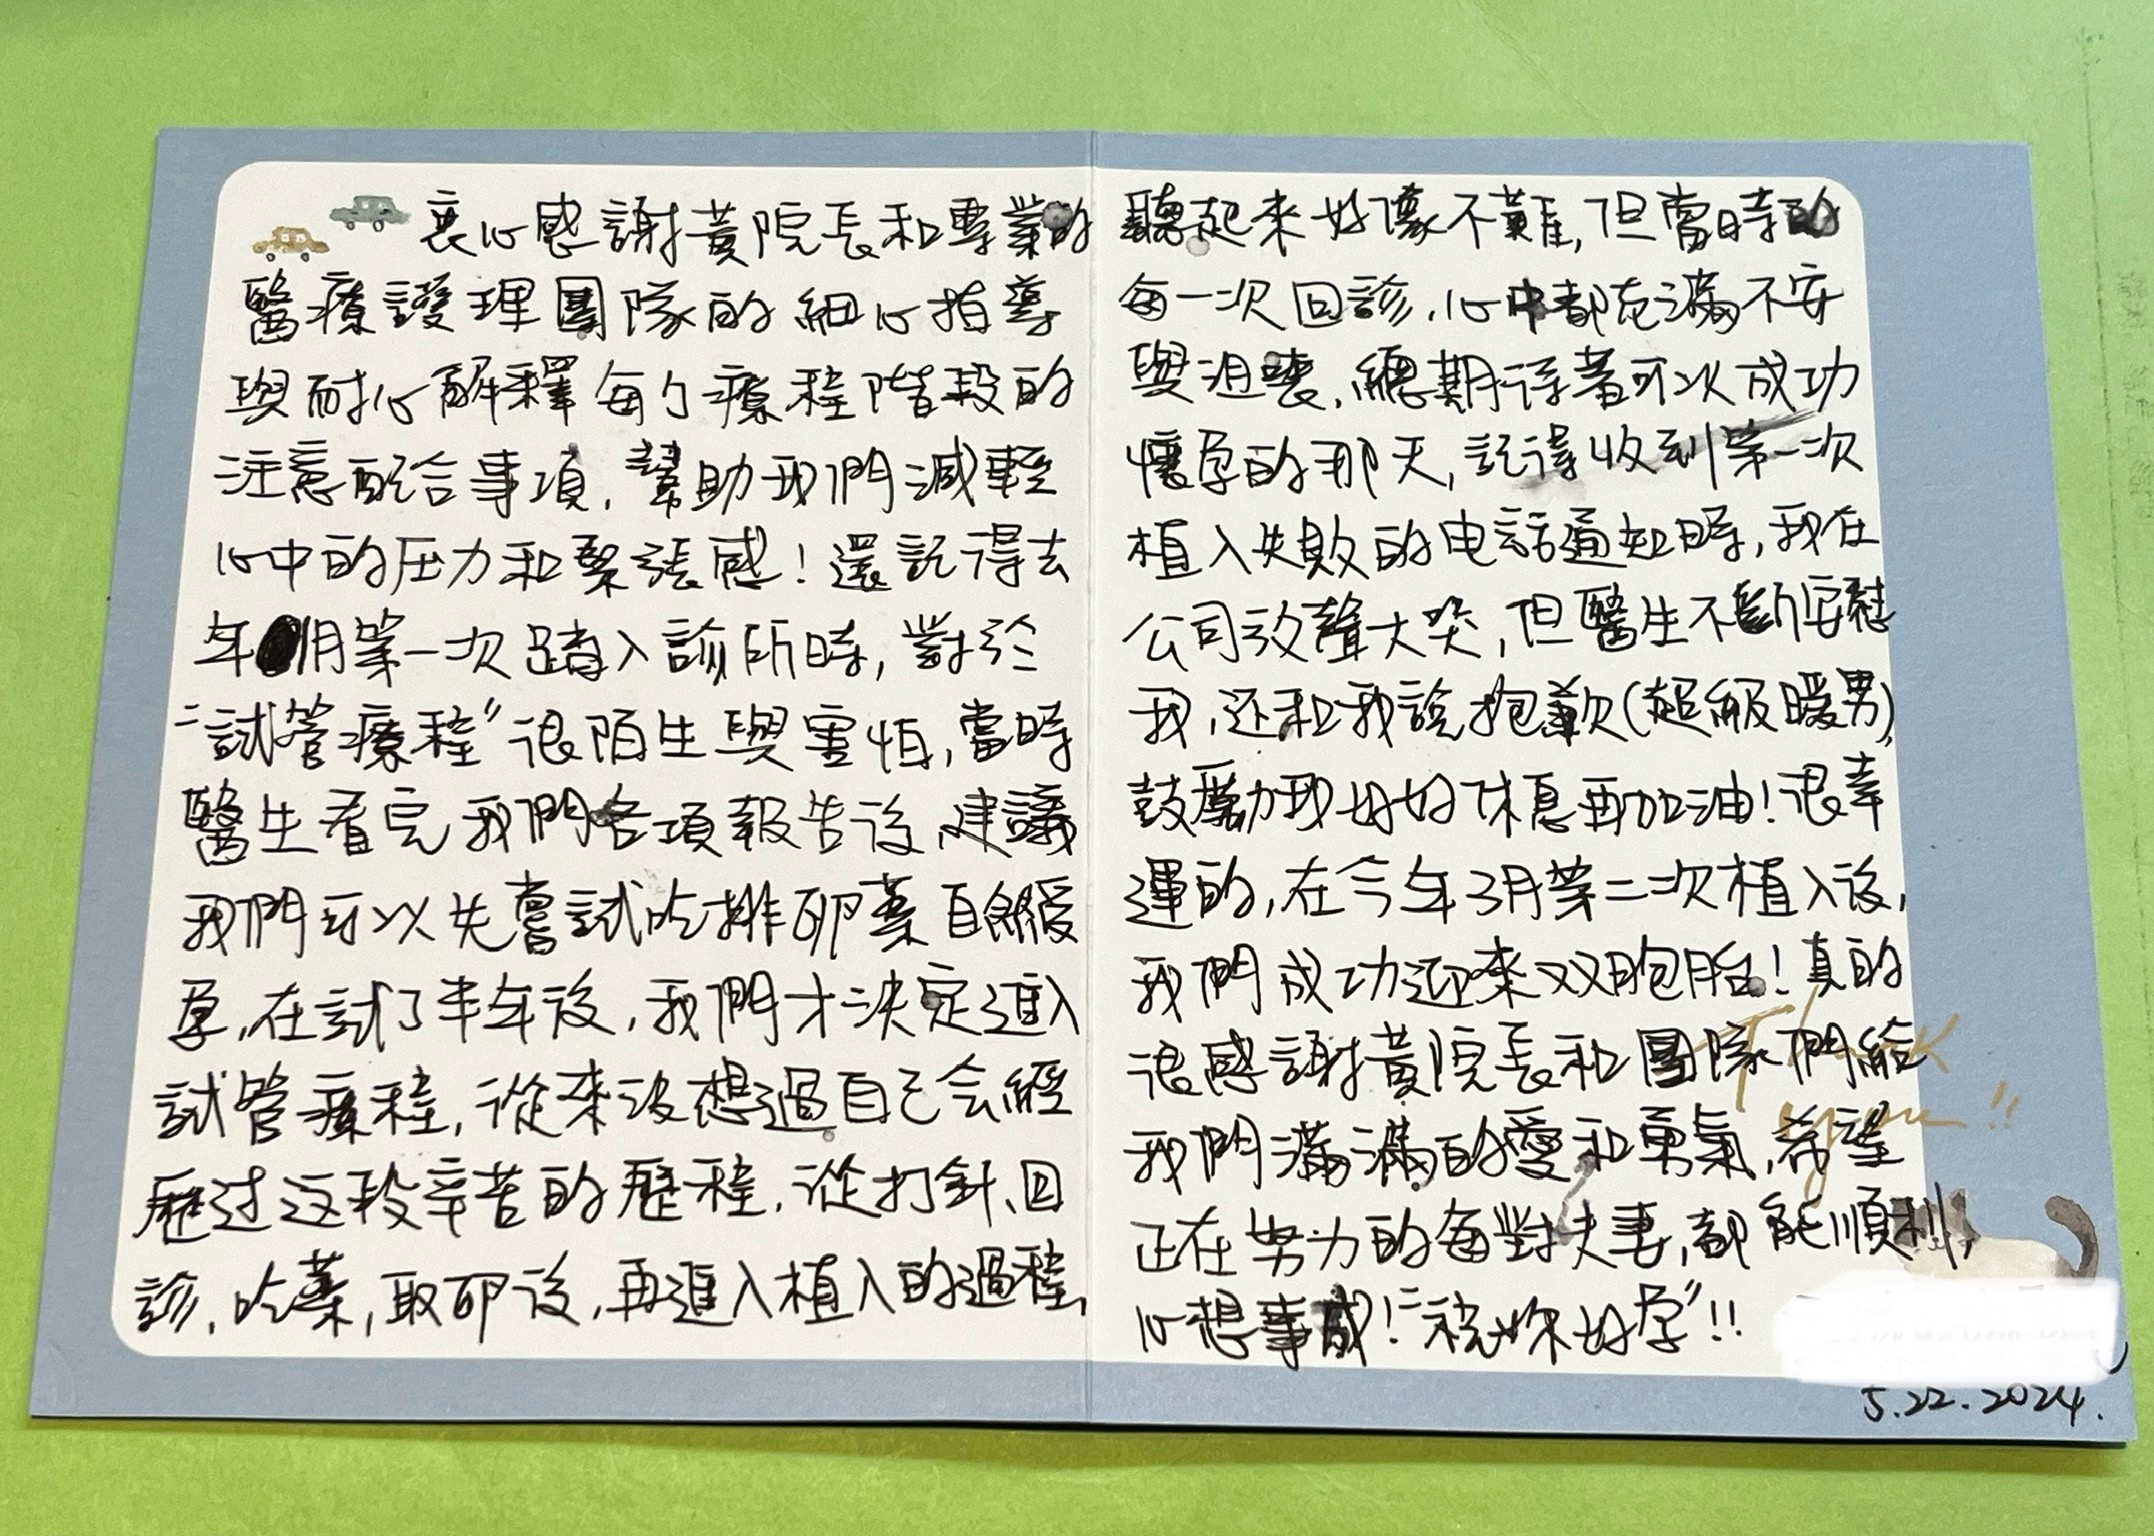 衷心感謝黃院長和專業的
醫療護理團隊的細心指導
與耐心解釋每个療程階段的
注意配合事項,幫助我們減輕
心中的压力和緊張感!還記得去
年1月第一次踏入診所時,對於
"試管療程"很陌生與害怕,當時
醫生看完我們各項報告後,建議
我們可以先嘗試吃排卵藥自然受
孕,在試了半年後,我們才決定進入
試管療程,從來没想過自己会經
歷过这段辛苦的歷程,從打針、回
診、吃藥,取卵後,再進入植入的過程,
聽起來好像不難,但當時的
每一次回診,心中都充滿不安
與沮喪,總期待著可以成功
懷孕的那天,記得收到第一次
植入失敗的电話通知時,我在
公司放聲大哭,但醫生不斷安慰
我,还和我說抱歉(超級暖男),
鼓勵我好好休息再加油!很幸
運的,在今年3月第二次植入後,
我們成功迎來双胞胎!真的
很感謝黃院長和團隊們給
我們滿滿的愛和勇氣,希望
正在努力的每對夫妻,都能順利,
心想事成!"祝妳好孕"!!
Thank
you!!
5.22.2024.